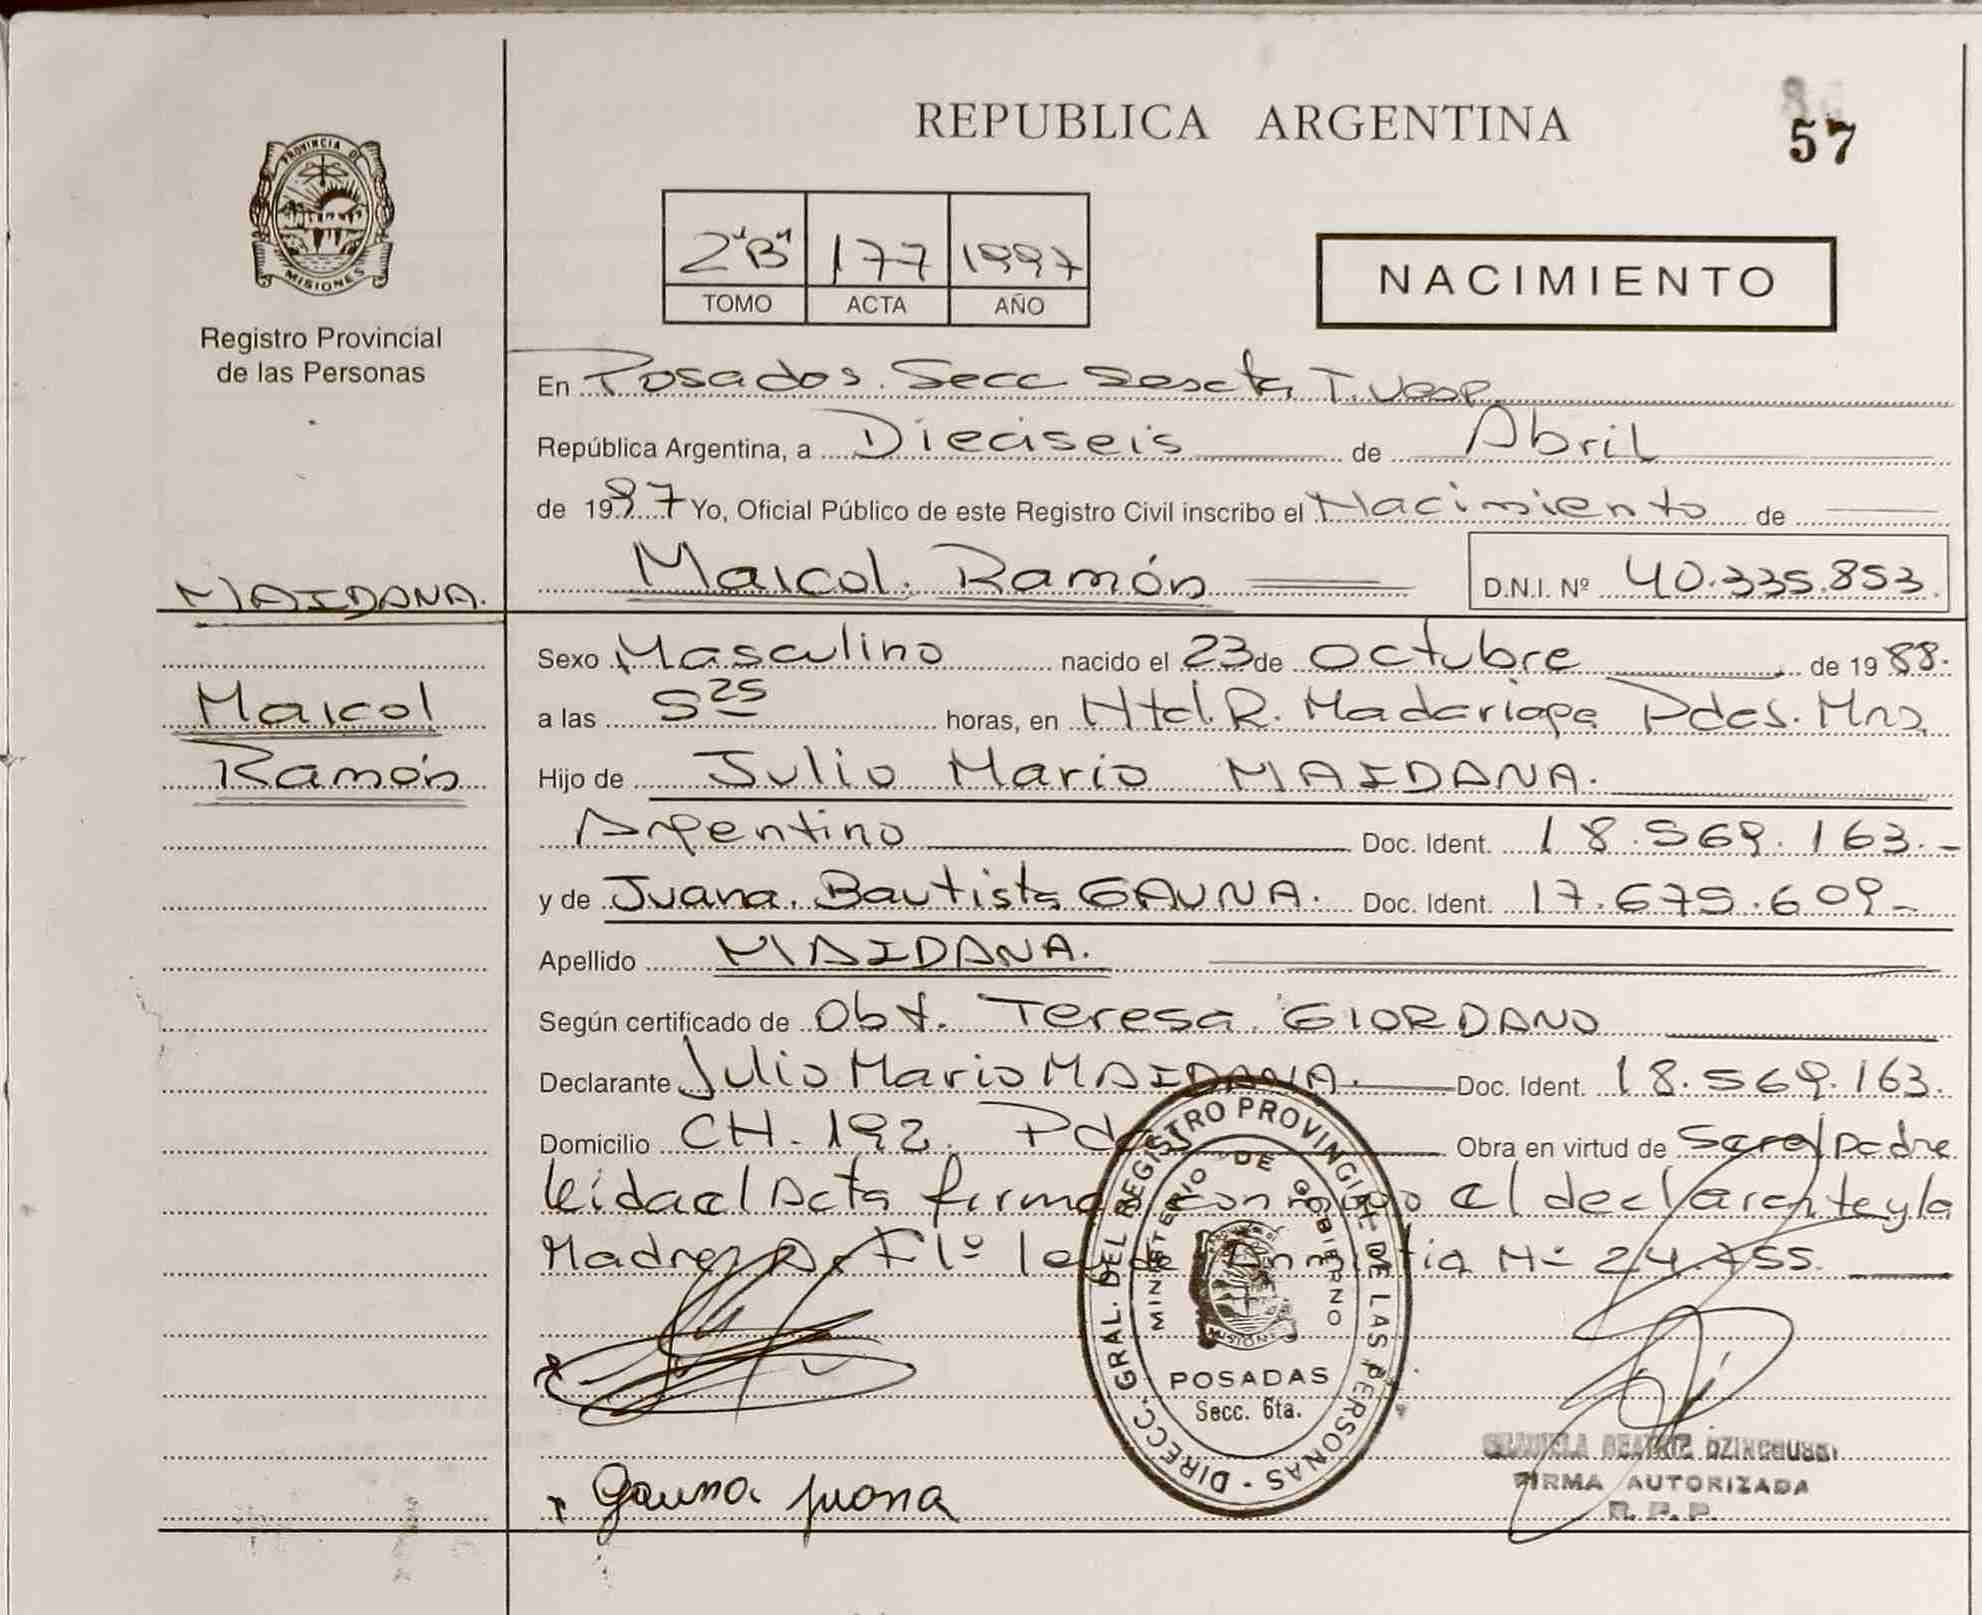 REPUBLICA ARGENTINA
57
PROVINCIA DE
MISIONES
Registro Provincial
de las Personas
2"B" 177 1997
TOMO ACTA AÑO
NACIMIENTO
En Posadas. Secc Sexta T. Vesp.
República Argentina, a Dieciseis de Abril
de 1997 Yo, Oficial Público de este Registro Civil inscribo el Nacimiento de
MAIDANA.
Maicol Ramón
Maicol. Ramón D.N.I. Nº 40.335.853.
Sexo Masculino nacido el 23 de Octubre de 1988.
a las 5 25 horas, en Htal. R. Madariaga Pdas. Mns,
Hijo de Julio Mario MAIDANA.
Argentino Doc. Ident. 18.569.163.-
y de Juana. Bautista GAUNA. Doc. Ident. 17.675.609-
Apellido MAIDANA.
Según certificado de Obt. Teresa GIORDANO
Declarante Julio Mario MAIDANA. Doc. Ident. 18.569.163.
Domicilio CH-192. Pdas Obra en virtud de Ser el padre
leida el Acta firma conmigo el declarante y la
Madre. ley de Amnistia Nº 24.755.
DIRECC. GRAL. DEL REGISTRO PROVINCIAL DE LAS PERSONAS -
MINISTERIO DE GOBIERNO
MISIONES
POSADAS
Secc. 6ta.
BEATRIZ
FIRMA AUTORIZADA
R. P. P.
Gauna Juana